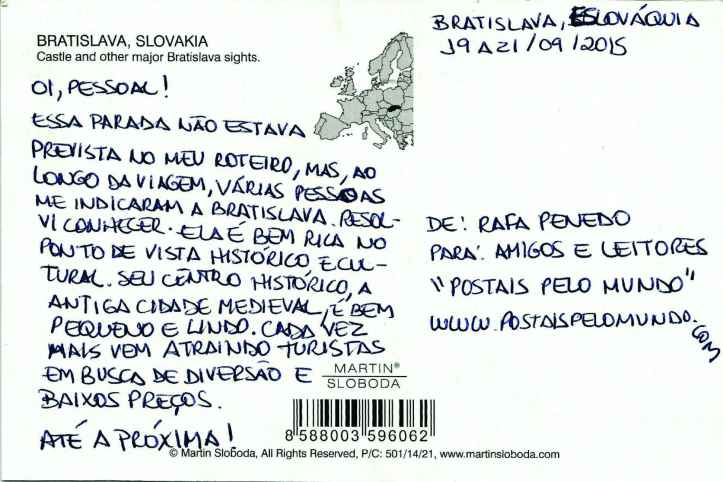 BRATISLAVA, SLOVAKIA
Castle and other major Bratislava sights.
OI, PESSOAL!
ESSA PARADA NÃO ESTAVA
PREVISTA NO MEU ROTEIRO, MAS, AO
LONGO DA VIAGEM, VÁRIAS PESSOAS
ME INDICARAM A BRATISLAVA. RESOL-
VI CONHECER. ELA É BEM RICA NO
PONTO DE VISTA HISTÓRICO E CUL-
TURAL. SEU CENTRO HISTÓRICO, A
ANTIGA CIDADE MEDIEVAL, É BEM
PEQUENO E LINDO. CADA VEZ
MAIS VEM ATRAINDO TURISTAS
EM BUSCA DE DIVERSÃO E
BAIXOS PREÇOS.
ATÉ A PRÓXIMA!
MARTIN®
SLOBODA
8 588003 596062
© Martin Sloboda, All Rights Reserved, P/C: 501/14/21, www.martinsloboda.com
BRATISLAVA, ESLOVÁQUIA
19 A 21/09/2015
DE: RAFA PENEDO
PARA: AMIGOS E LEITORES
"POSTAIS PELO MUNDO"
WWW.POSTAISPELOMUNDO.COM